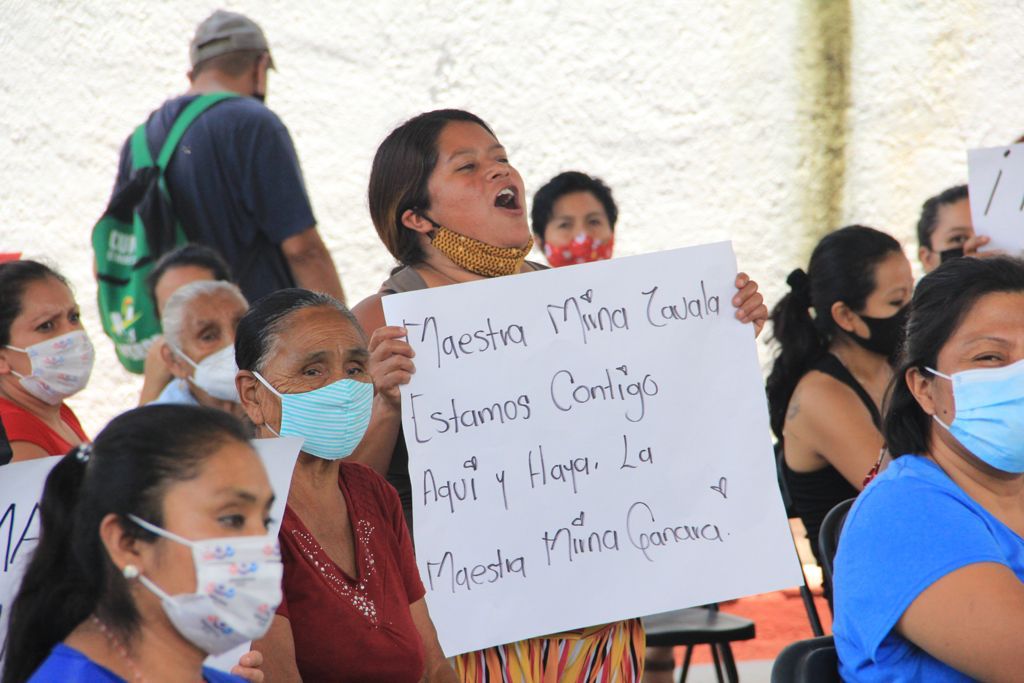 Maestra Mirna Zavala
Estamos Contigo
Aqui y Haya. La
Maestra Mirna Ganara.
MA